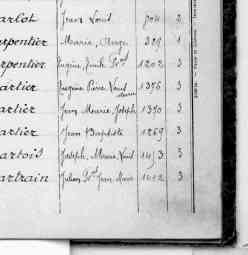 arlot Jean Louis 704 2
arpentier Marie, Ange 329 1
arpentier Eugène, Emile Fçs 1202 3
artier Eugène Pierre Louis 1376 3
artier Jean Marie, Joseph 1370 3
artier Jean Baptiste 1269 3
artois Joseph, Marie, Louis 1413 3
artrain Julien Fçs Jean Marie 1412 3